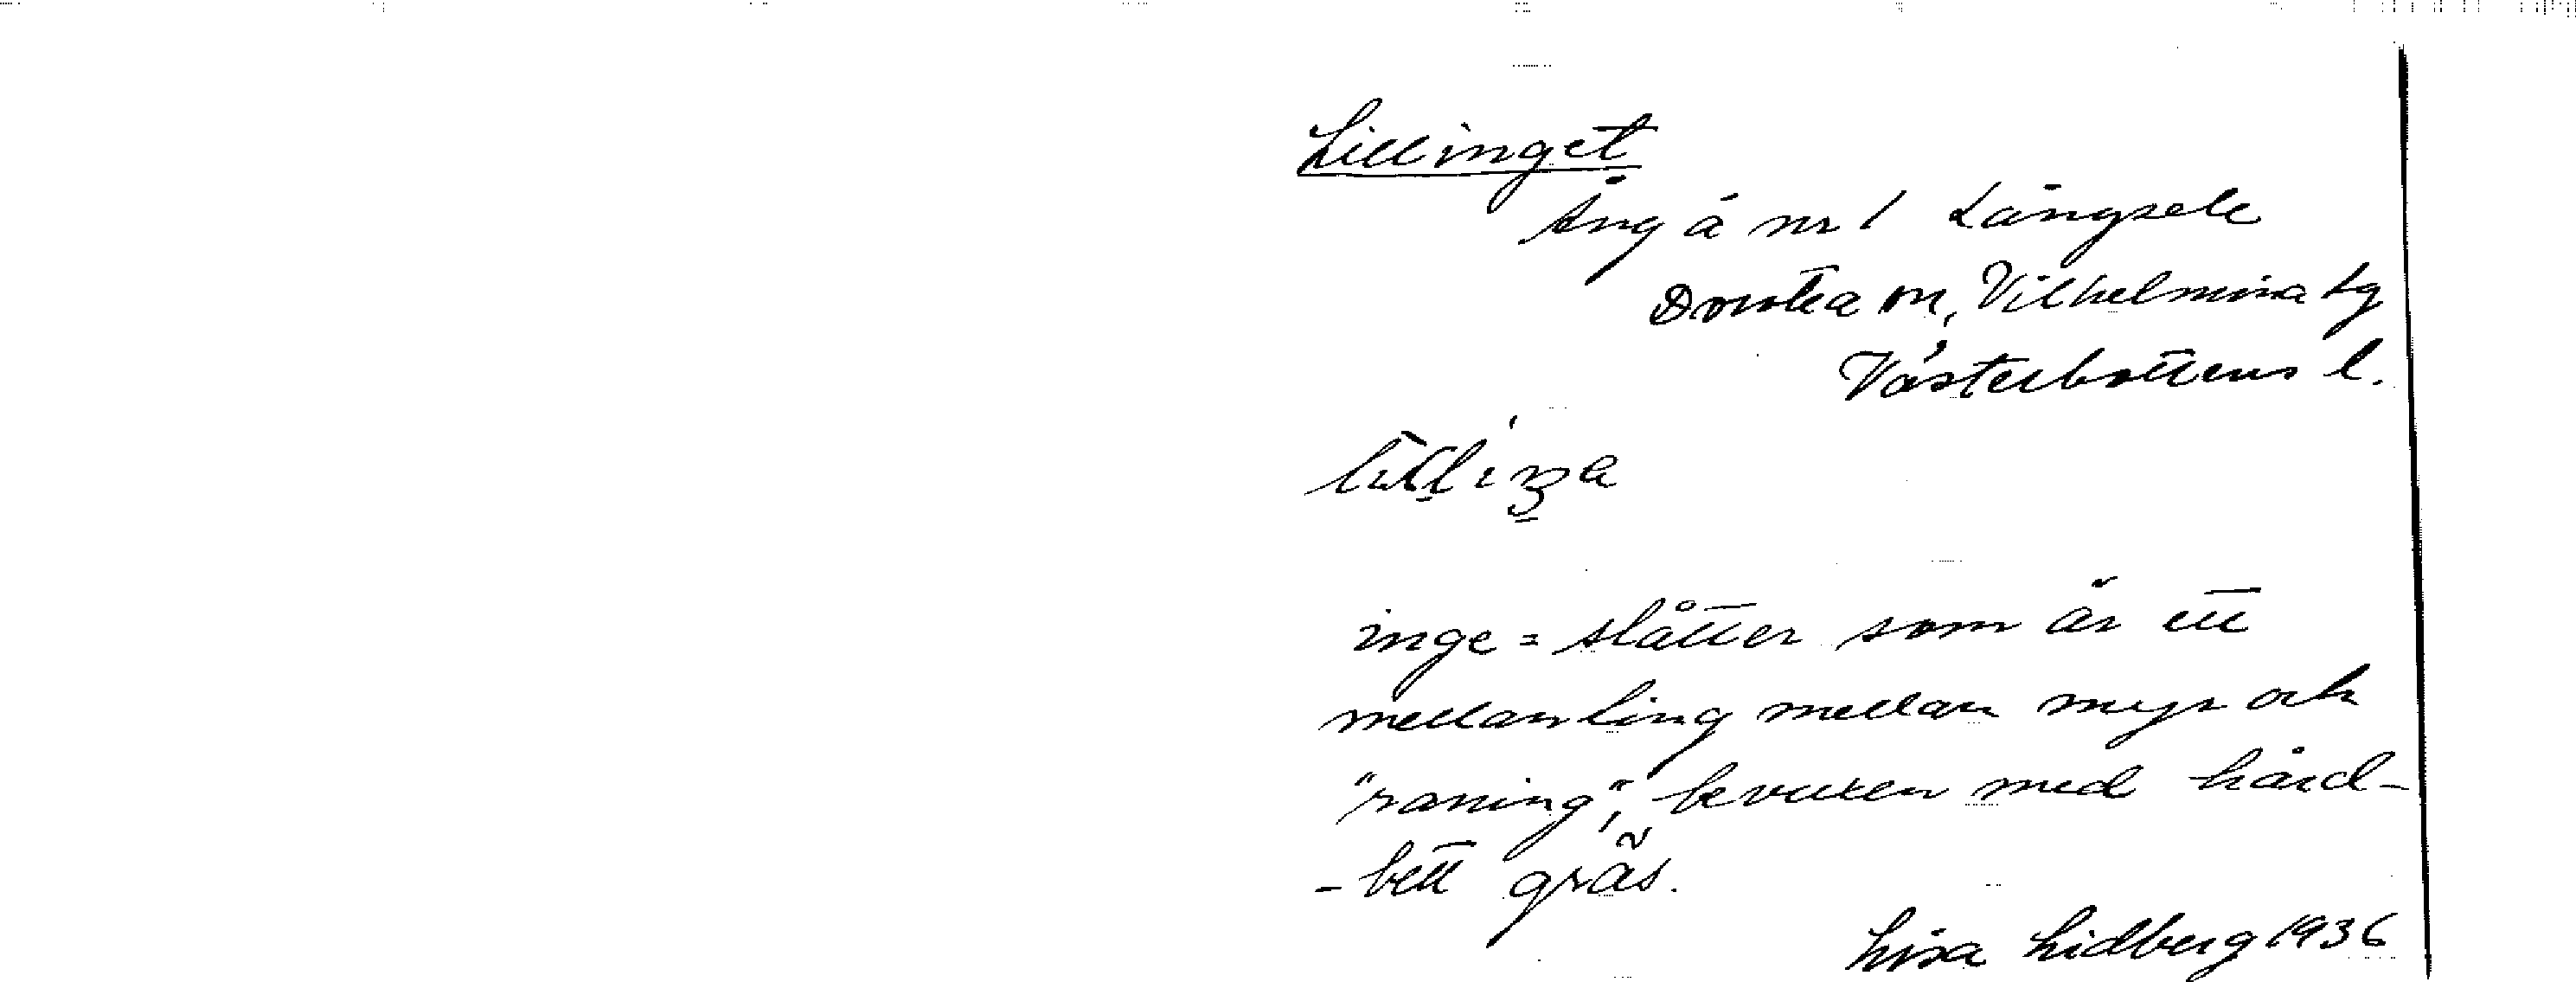 Lillinget
Äng å nr 1 Långsele
Dorotea sn, Vilhelmina tg
Västerbottens l.
inge = slåtter som är ett
mellanting mellan myr och
"raning", bevuxen med hård-
-bett gräs.
Lisa Lidberg 1936